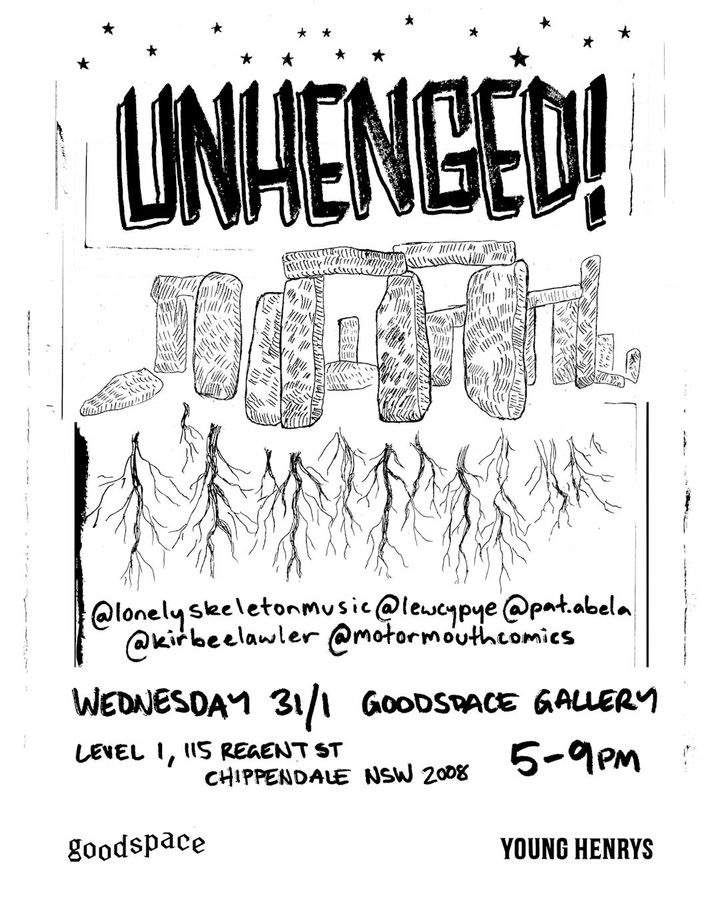 UNHENGED!
@lonelyskeletonmusic @lewcypye @pat.abela
@kirbeelawler @motormouthcomics
WEDNESDAY 31/1 GOODSPACE GALLERY
LEVEL 1, 115 REGENT ST
CHIPPENDALE NSW 2008
5-9PM
goodspace
YOUNG HENRYS